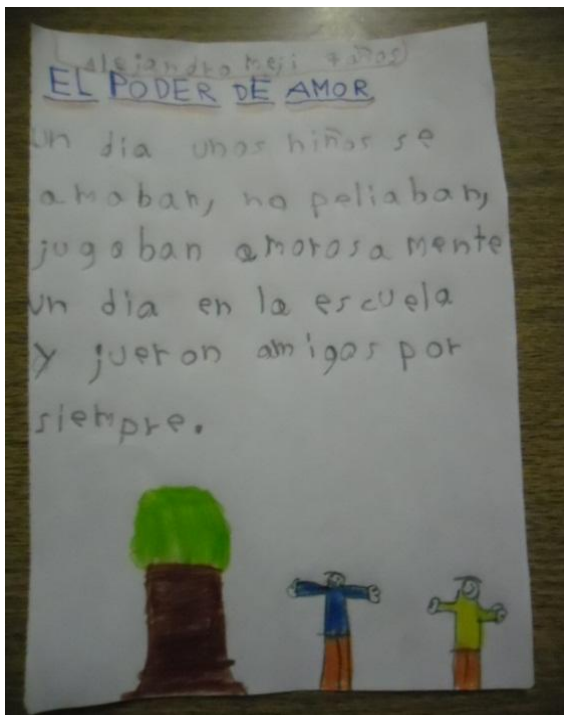 (Alejandro Meji 7 años)
EL PODER DE AMOR
un dia unos niños se
amaban, no peliaban,
jugaban amorosamente
un dia en la escuela
y jueron amigos por
siempre.